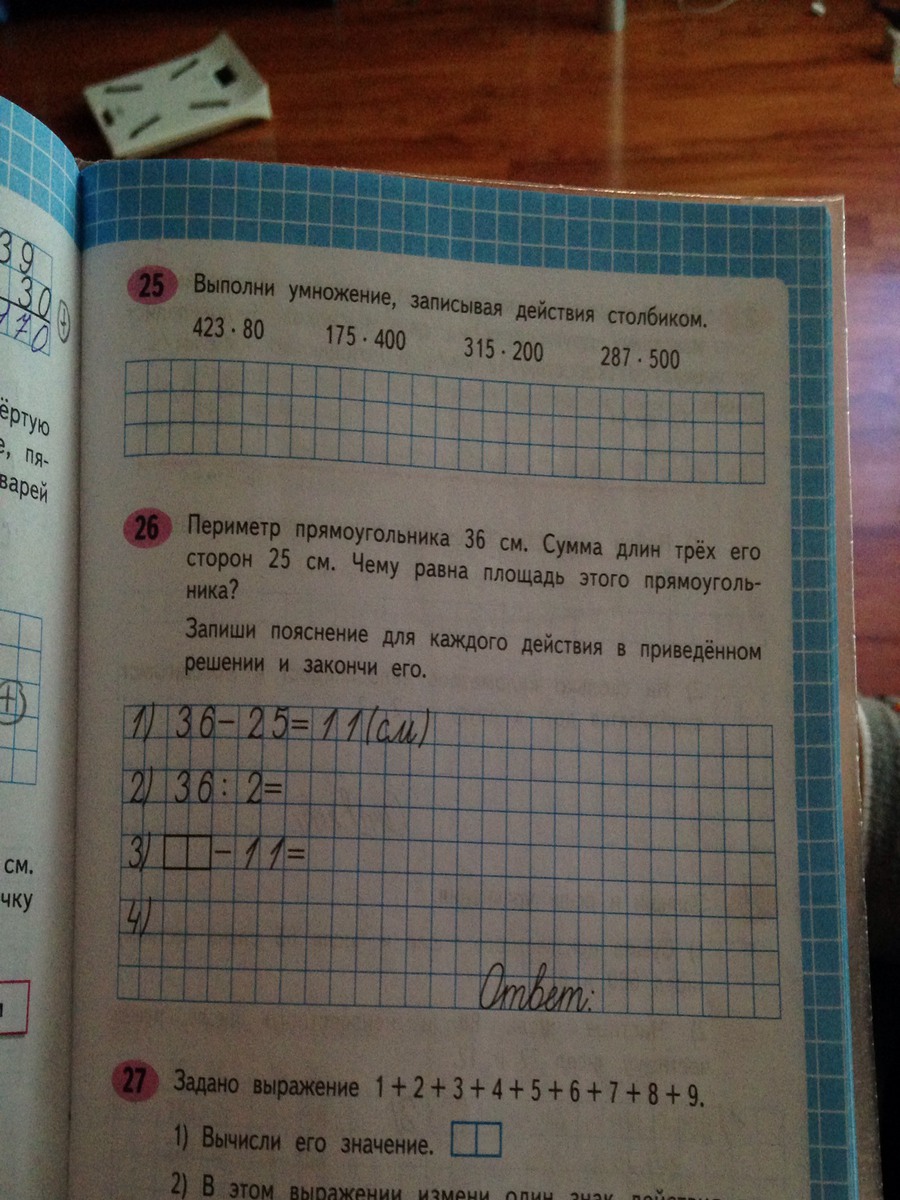 39
30
170
ёртую
е, пя-
варей
см.
чку
25 Выполни умножение, записывая действия столбиком.
423 · 80 175 · 400 315 · 200 287 · 500
26 Периметр прямоугольника 36 см. Сумма длин трёх его
сторон 25 см. Чему равна площадь этого прямоуголь-
ника?
Запиши пояснение для каждого действия в приведённом
решении и закончи его.
1) 36 – 25 = 11 (см)
2) 36 : 2 =
3) – 11 =
4)
Ответ:
27 Задано выражение 1 + 2 + 3 + 4 + 5 + 6 + 7 + 8 + 9.
1) Вычисли его значение.
2) В этом выражении измени один знак действия